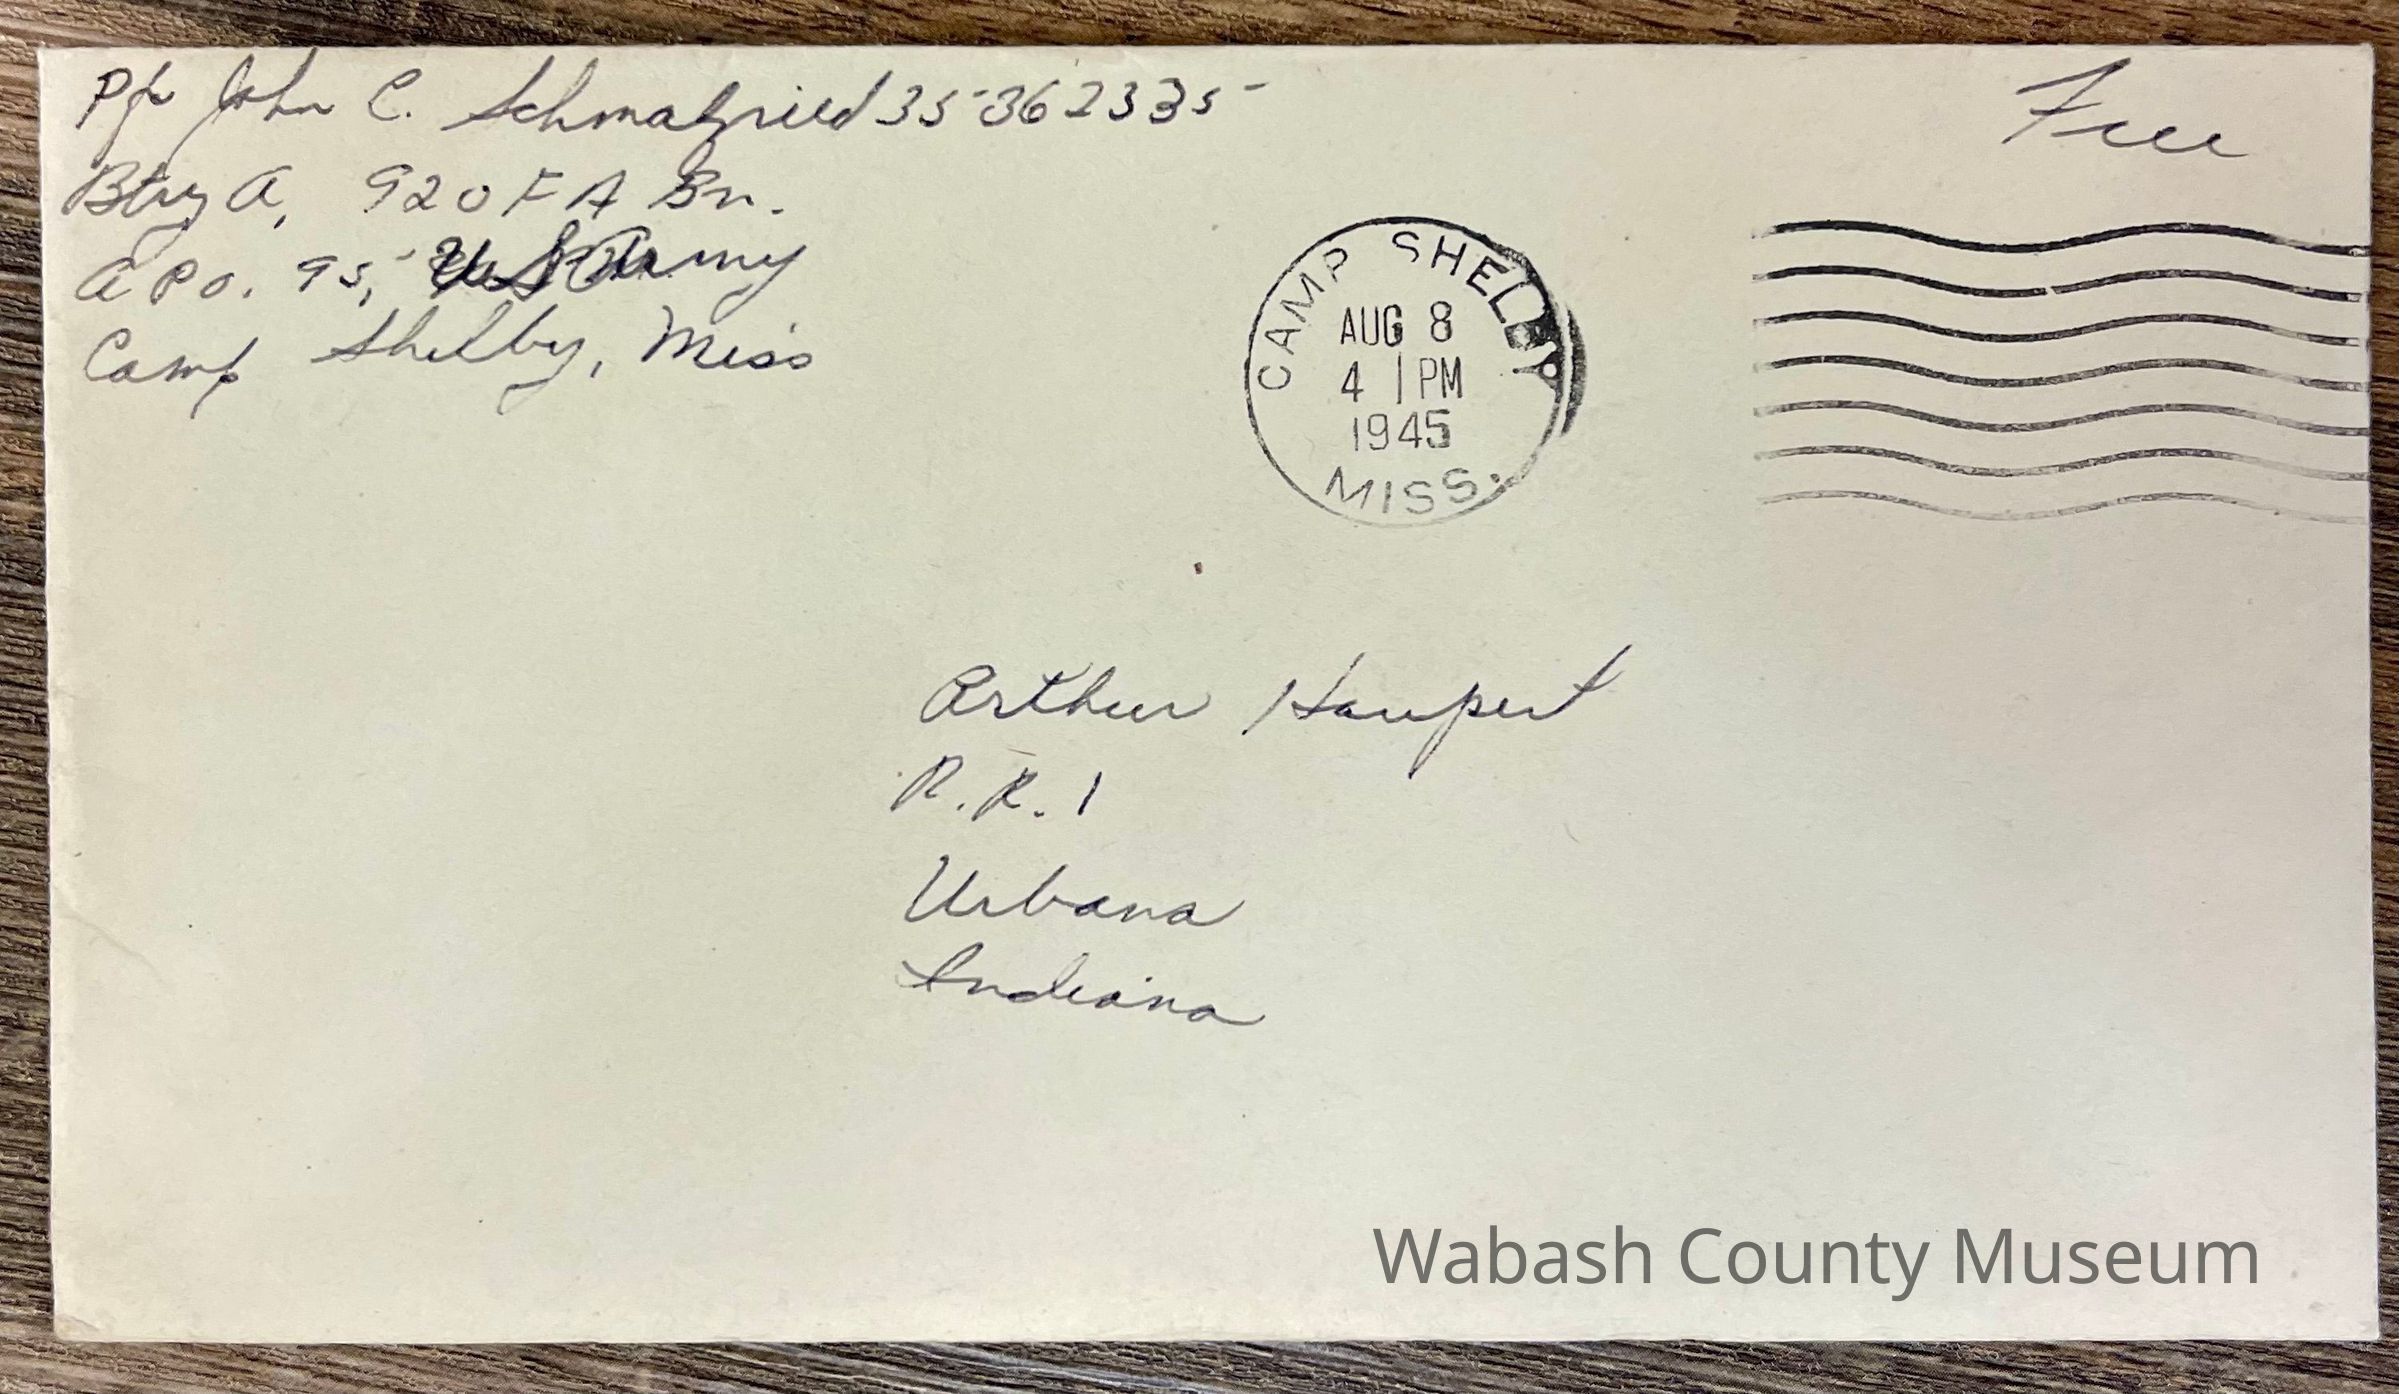 Pfc John C. Schmalzried 35362335
Btry A, 920 F A Bn.
A P O. 95, US Army
Camp Shelby, Miss
Free
CAMP SHELBY
AUG 8
4 1 PM
1945
MISS.
Arthur Haupert
R.R. 1
Urbana
Indiana
Wabash County Museum